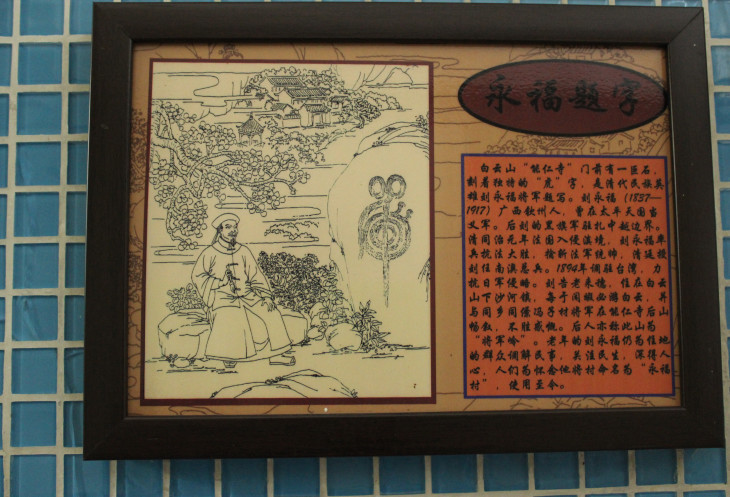 永福题字
白云山“能仁寺”门前有一巨石，
刻着独特的“虎”字，是清代民族英
雄刘永福将军题写。刘永福（1837—
1917）广西钦州人，曾在太平天国当
义军。后创的黑旗军驻扎中越边界。
清同治元年法国入侵滇境，刘永福率
兵抗法大胜，擒斩法军统帅，清廷授
刘任南澳总兵。1894年调驻台湾，力
抗日军侵略。刘告老来穗，住在白云
山下沙河镇，每于闲暇必游白云，并
与同乡同僚冯子材将军在能仁寺后山
畅叙，不胜感慨。后人亦称此山为
“将军岭”。老年的刘永福仍为住地
的群众调解民事，关注民生，深得人
心，人们为怀念他将村命名为“永福
村”，使用至今。